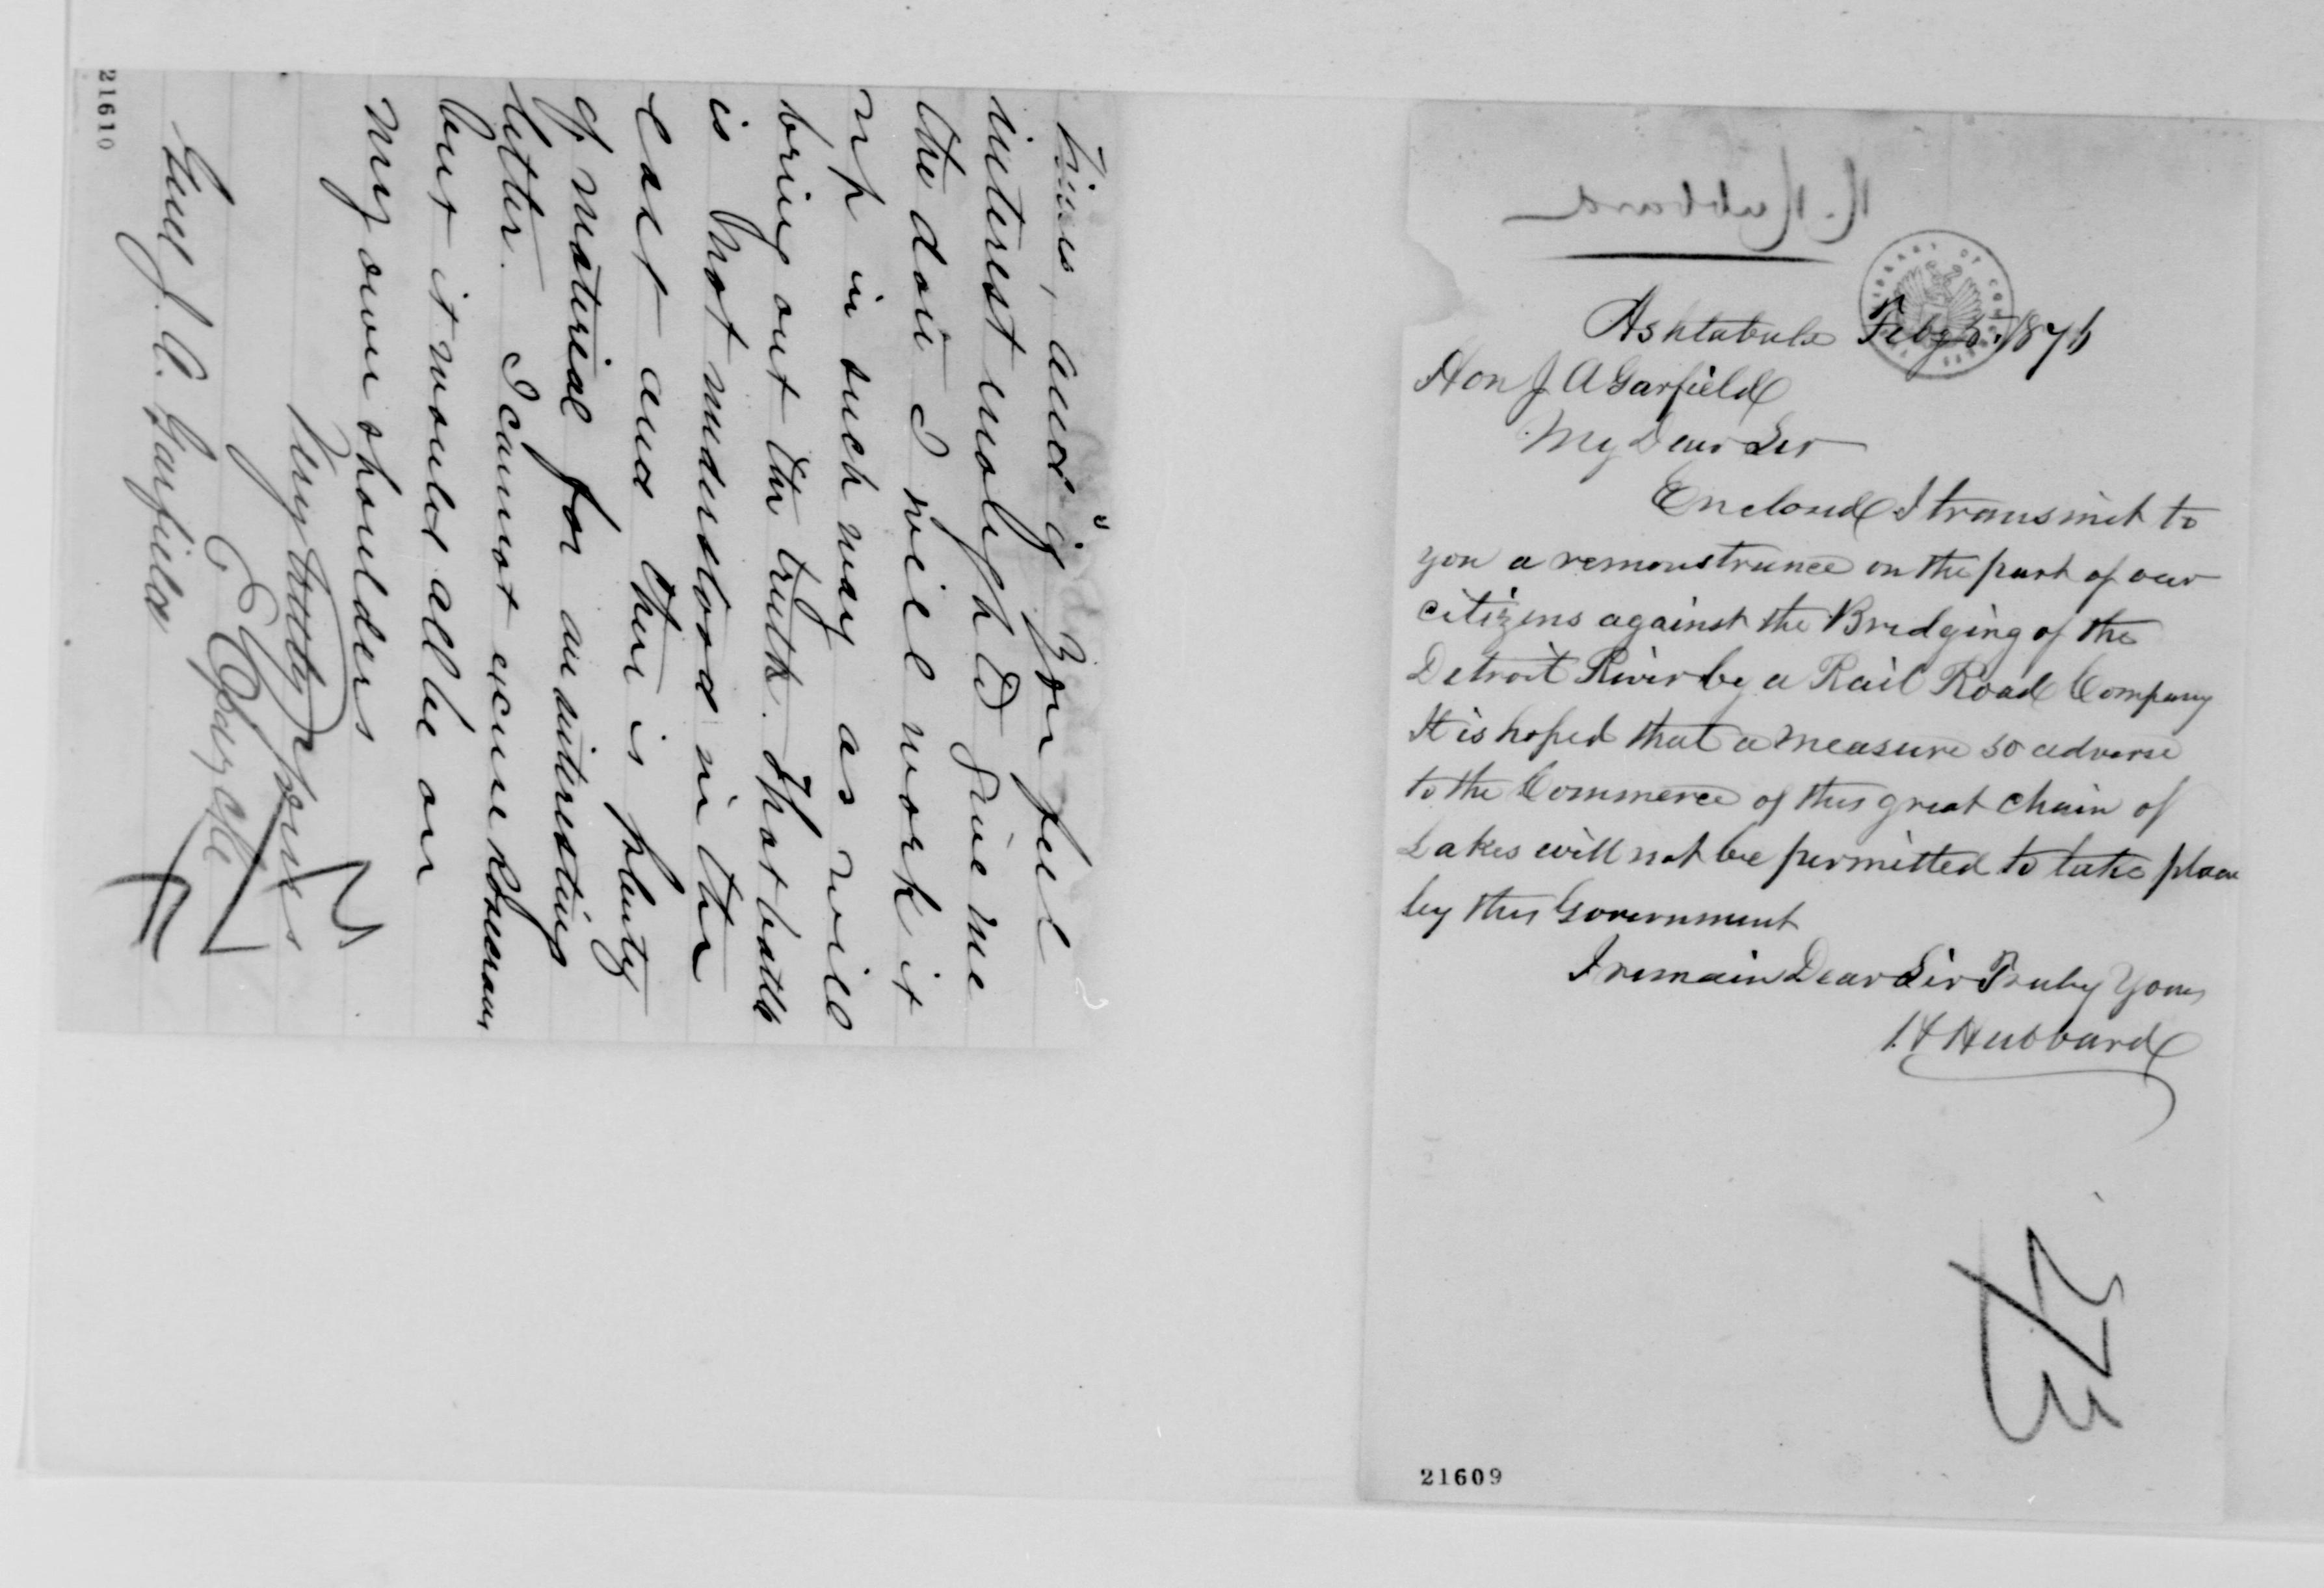 time, and if you feel
interest enough to give me
the dots I will work it
up in such way as will
bring out the truth. That battle
is not understood in the
East and there is plenty
of material for an interesting
letter. I cannot
but it would all be on
my own shoulders
Very truly yours
Genl J. A. Garfield
21610
H. Hubbard
LIBRARY OF CONGRESS
Ashtabula Feby 5. 1876
Hon J A Garfield
My Dear Sir
Enclosed I transmit to
you a remonstrance on the part of our
citizens against the Bridging of the
Detroit River by a Rail Road Company
It is hoped that a measure so adverse
to the Commerce of this great chain of
Lakes will not be permitted to take place
by this Government
I remain Dear Sir Truly Yours
H Hubbard
273
21609